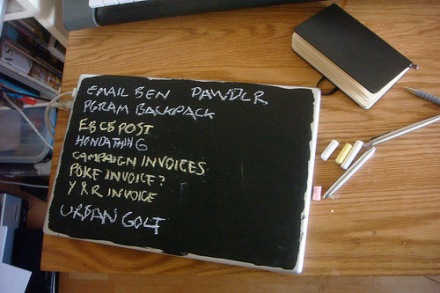 EMAIL SEN DAWDLR
PGRAM BACKPACK
EBCB POST
HONDATHING
CAMPAIGN INVOICES
POKE INVOICE?
Y R R INVOICE
URBAN GOLF